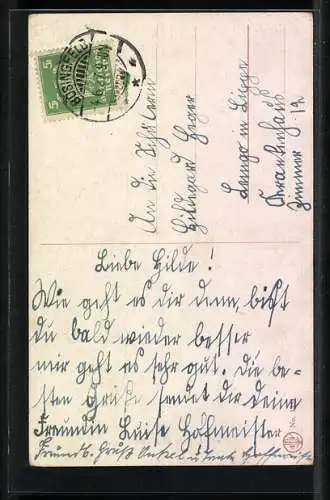 5
5
BÖSINGFELD
Deutsches Reich
An die Schülerin
Hildegard Heger
Lemgo in Lippe
Krankenhaus
Zimmer 12
Liebe Hilde!
Wie geht es dir denn, bist
du bald wieder besser
mir geht es sehr gut. Die be-
sten Grüße sendet dir deine
Freundin Luise Hofmeister
Freundl. Gruß Onkel u. Tante Hofmeister
No.